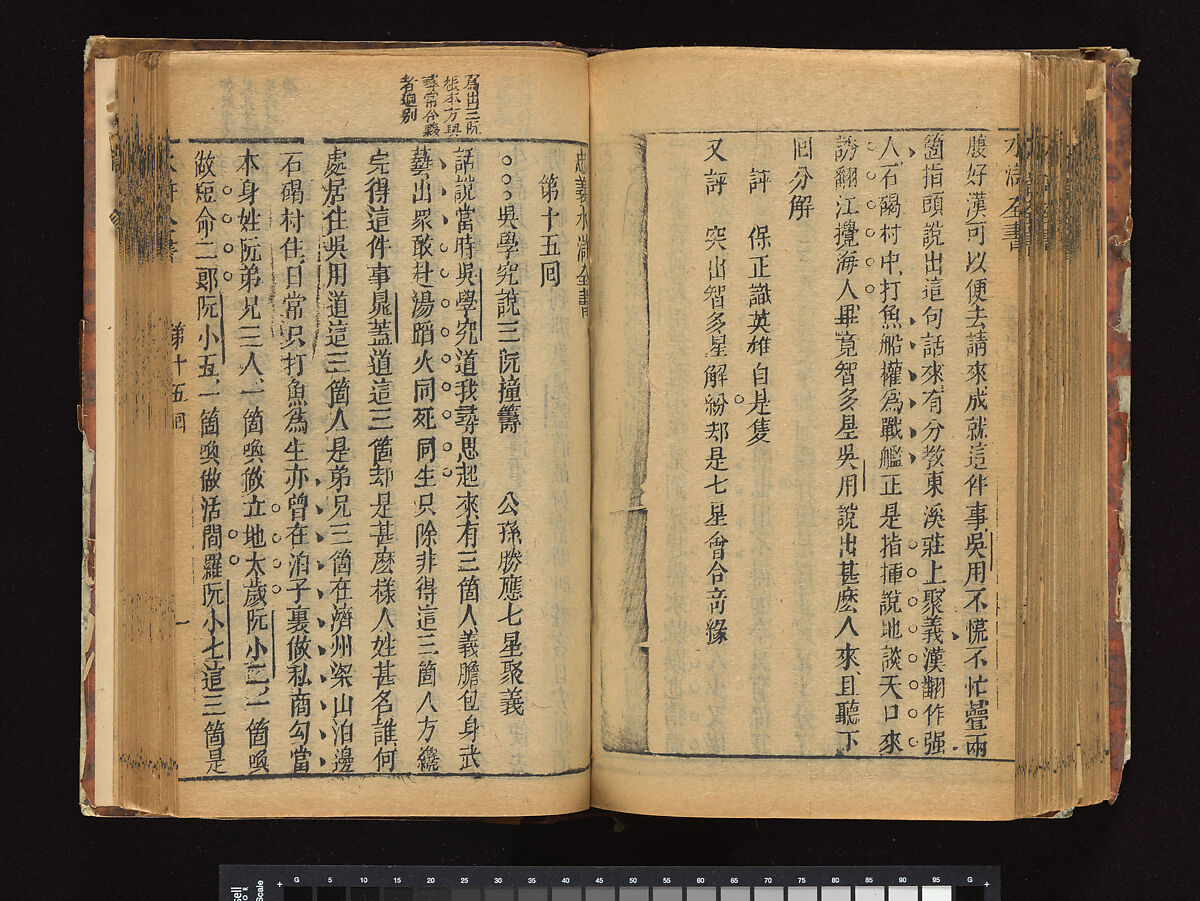 水滸全書
膄好漢可以便去請來成就這件事吳用不慌不忙疊兩
箇指頭說出這句話來有分教東溪莊上聚義漢翻作强
人石碣村中打魚船權為戰艦正是指揮說地談天口來
誘翻江攪海人畢竟智多星吳用說出甚麽人來且聽下
回分解
評 保正識英雄自是隻
又評 突出智多星解紛却是七星會合奇緣
忠義水滸全書
第十五回
吳學究說三阮撞籌 公孫勝應七星聚義
寫出三阮
根本方與
尋常合夥
者迥別
話說當時吳學究道我尋思起來有三箇人義膽包身武
藝出眾敢赴湯蹈火同死同生只除非得這三箇人方纔
完得這件事晁蓋道這三箇却是甚麽樣人姓甚名誰何
處居住吳用道這三箇人是弟兄三箇在濟州梁山泊邊
石碣村住日常只打魚為生亦曾在泊子裏做私商勾當
本身姓阮弟兄三人一箇喚做立地太歲阮小二一箇喚
做短命二郎阮小五一箇喚做活閻羅阮小七這三箇是
水滸全書 第十五回 一
G 5 10 15 20 25 30 35 40 45 50 55 60 65 70 75 80 85 90 95 G
Scale